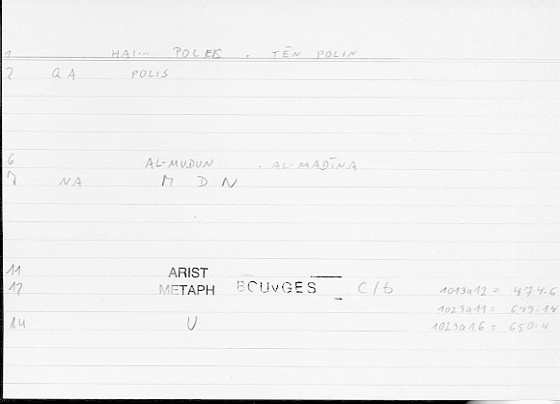 1 HAI POLEIS . TĒN POLIN
2 QA POLIS
6 AL-MUDUN . AL-MADĪNA
7 NA M D N
11 ARIST
12 METAPH BOUYGES C/b 1013a12 = 474.6
1023a11 = 649.14
14 U 1023a16 = 650.4